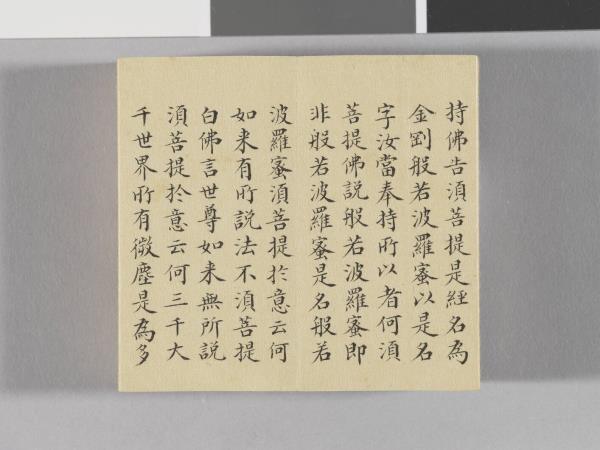 持佛告湏菩提是經名為
金剛般若波羅蜜以是名
字汝當奉持所以者何湏
菩提佛說般若波羅蜜即
非般若波羅蜜是名般若
波羅蜜湏菩提於意云何
如来有所說法不湏菩提
白佛言世尊如来無所說
湏菩提於意云何三千大
千世界所有微塵是為多